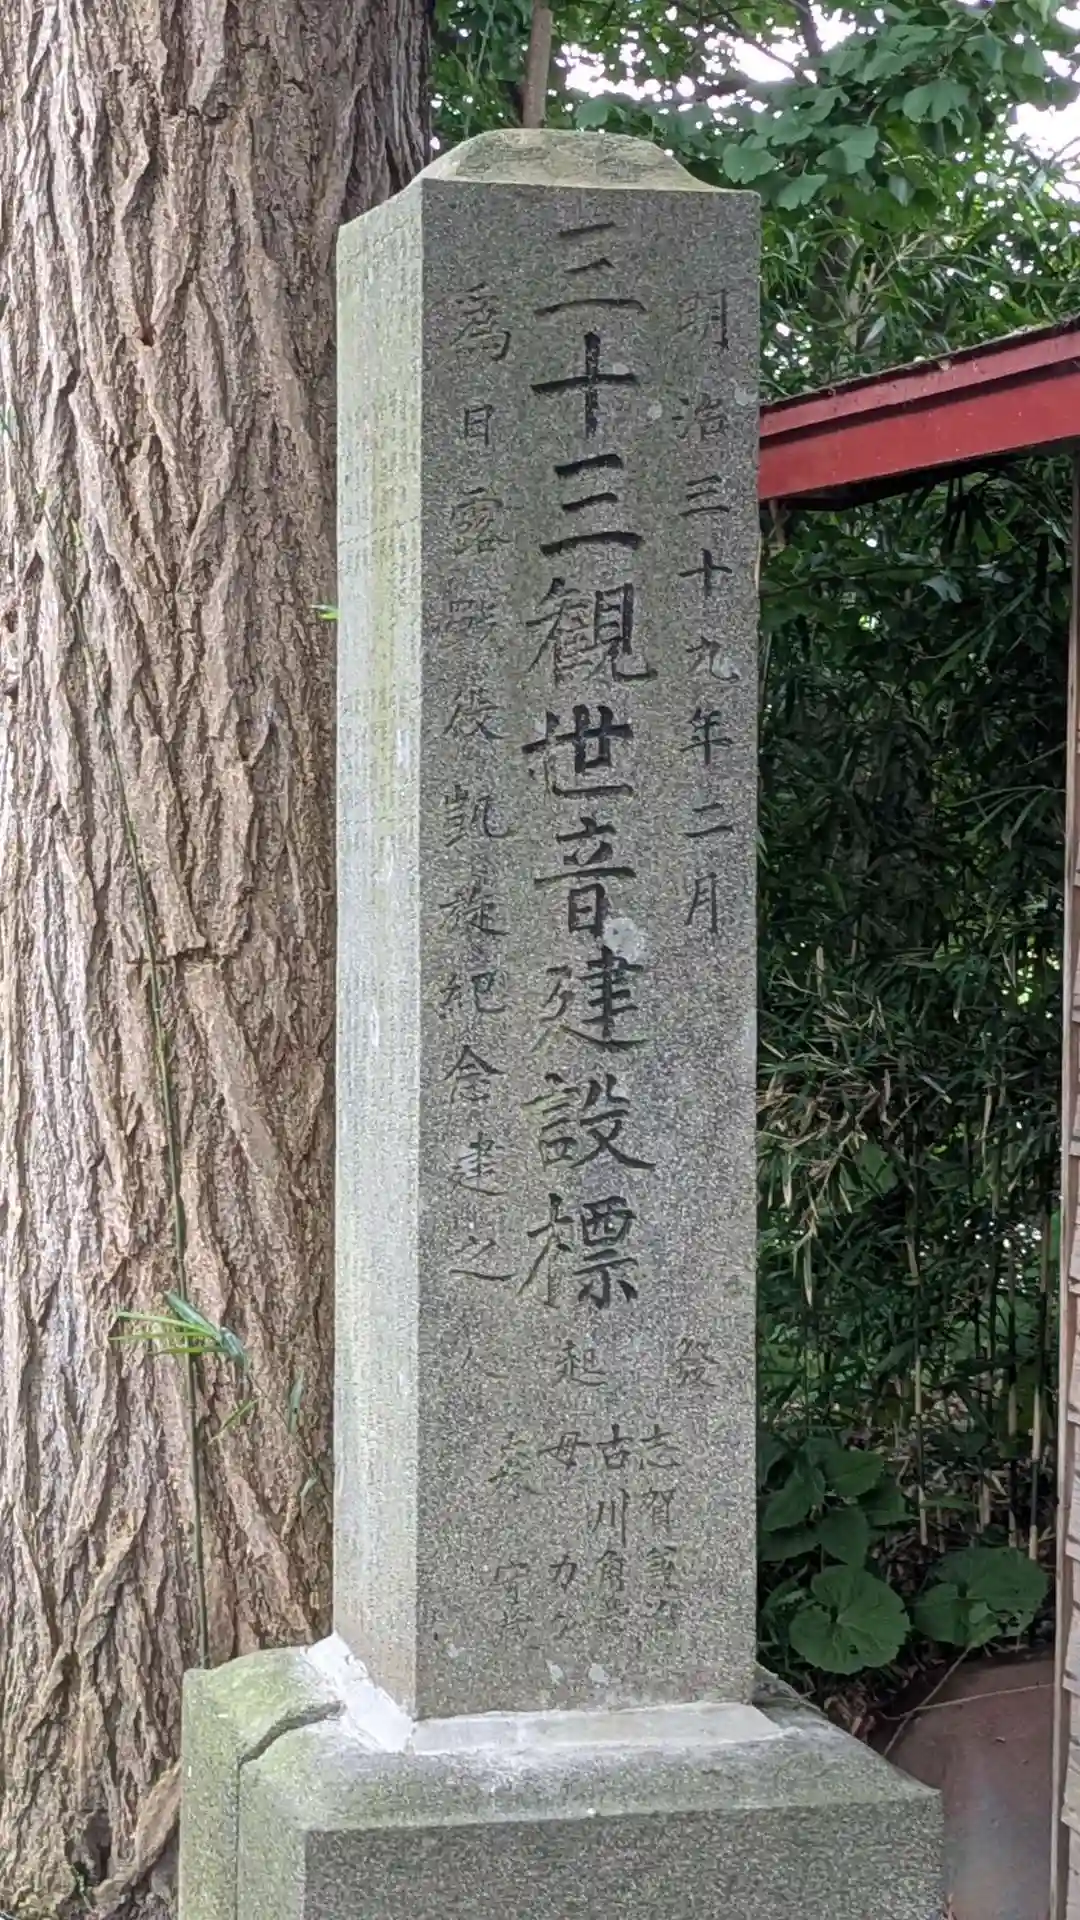 明治三十九年二月
三十三観世音建設標
為日露戰役凱旋紀念建之
発起人
志賀
古川
母
妻